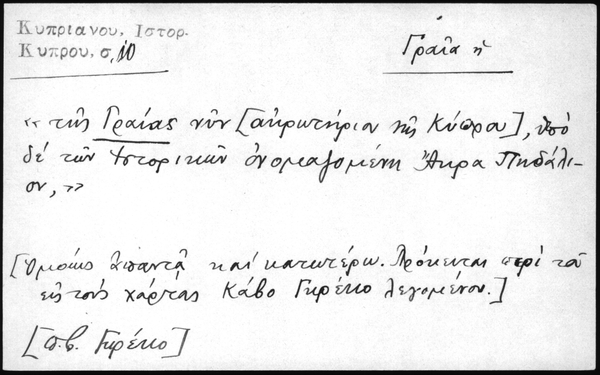 Κυπριανου, Ιστορ.
Κυπρου, σ. 10
Γραῖα ἡ
« τῆς Γραίας νῦν [ἀκρωτήριον τῆς Κύπρου], ὑπὸ
δὲ τῶν Ἱστορικῶν ὀνομαζομένη Ἄκρα Πηδάλι-
ον, »
[Ὁμοίως ἀπαντᾷ καὶ κατωτέρω. Πρόκειται περὶ τοῦ
εἰς τοὺς χάρτας Κάβο Γκρέκο λεγομένου.]
[π.β. Γκρέκο]